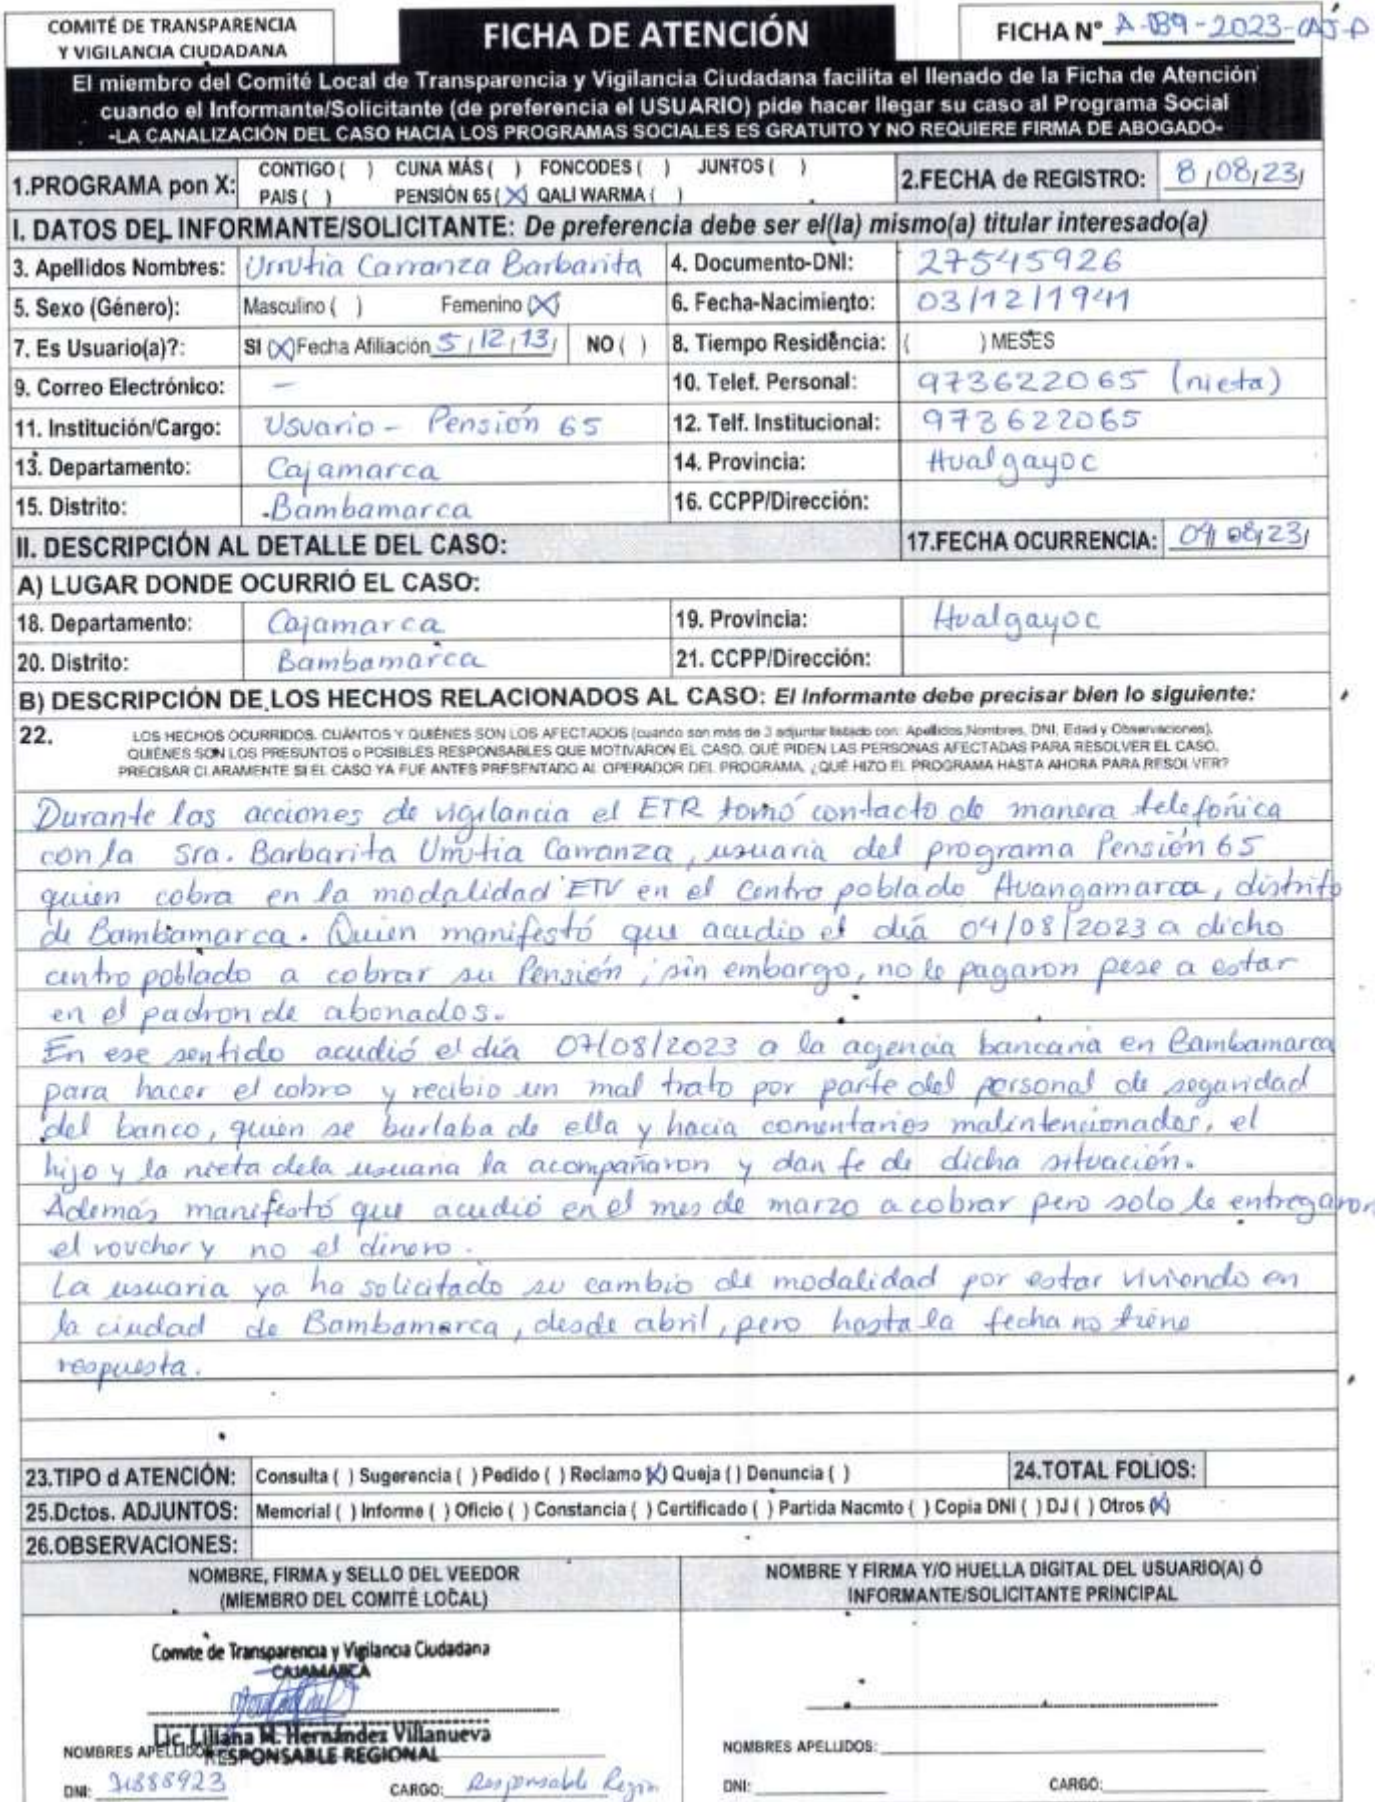 COMITÉ DE TRANSPARENCIA
Y VIGILANCIA CIUDADANA
FICHA DE ATENCIÓN
FICHA N° A-089-2023-CAJ-P
El miembro del Comité Local de Transparencia y Vigilancia Ciudadana facilita el llenado de la Ficha de Atención
cuando el Informante/Solicitante (de preferencia el USUARIO) pide hacer llegar su caso al Programa Social
-LA CANALIZACIÓN DEL CASO HACIA LOS PROGRAMAS SOCIALES ES GRATUITO Y NO REQUIERE FIRMA DE ABOGADO-
1.PROGRAMA pon X: CONTIGO ( ) CUNA MÁS ( ) FONCODES ( ) JUNTOS ( )
PAIS ( ) PENSIÓN 65 (X) QALI WARMA ( )
2.FECHA de REGISTRO: 8/08/23/
I. DATOS DEL INFORMANTE/SOLICITANTE: De preferencia debe ser el(la) mismo(a) titular interesado(a)
3. Apellidos Nombres: Urrutia Carranza Barbarita 4. Documento-DNI: 27545926
5. Sexo (Género): Masculino ( ) Femenino (X) 6. Fecha-Nacimiento: 03/12/1941
7. Es Usuario(a)?: SI (X) Fecha Afiliación 5/12/13/ NO ( ) 8. Tiempo Residencia: ( ) MESES
9. Correo Electrónico: – 10. Telef. Personal: 973622065 (nieta)
11. Institución/Cargo: Usuario - Pensión 65 12. Telf. Institucional: 973622065
13. Departamento: Cajamarca 14. Provincia: Hualgayoc
15. Distrito: Bambamarca 16. CCPP/Dirección:
II. DESCRIPCIÓN AL DETALLE DEL CASO: 17.FECHA OCURRENCIA: 04/08/23/
A) LUGAR DONDE OCURRIÓ EL CASO:
18. Departamento: Cajamarca 19. Provincia: Hualgayoc
20. Distrito: Bambamarca 21. CCPP/Dirección:
B) DESCRIPCIÓN DE LOS HECHOS RELACIONADOS AL CASO: El Informante debe precisar bien lo siguiente:
22. LOS HECHOS OCURRIDOS. CUÁNTOS Y QUIÉNES SON LOS AFECTADOS (cuando son más de 3 adjuntar listado con: Apellidos,Nombres, DNI, Edad y Observaciones).
QUIÉNES SON LOS PRESUNTOS o POSIBLES RESPONSABLES QUE MOTIVARON EL CASO. QUÉ PIDEN LAS PERSONAS AFECTADAS PARA RESOLVER EL CASO.
PRECISAR CLARAMENTE SI EL CASO YA FUE ANTES PRESENTADO AL OPERADOR DEL PROGRAMA. ¿QUÉ HIZO EL PROGRAMA HASTA AHORA PARA RESOLVER?
Durante las acciones de vigilancia el ETR tomó contacto de manera telefónica
con la Sra. Barbarita Urrutia Carranza, usuaria del programa Pensión 65
quien cobra en la modalidad ETV en el Centro poblado Huangamarca, distrito
de Bambamarca. Quien manifestó que acudio el día 04/08/2023 a dicho
centro poblado a cobrar su Pensión, sin embargo, no le pagaron pese a estar
en el padron de abonados.
En ese sentido acudió el día 07/08/2023 a la agencia bancaria en Bambamarca
para hacer el cobro y recibio un mal trato por parte del personal de seguridad
del banco, quien se burlaba de ella y hacia comentarios malintencionados, el
hijo y la nieta dela usuaria la acompañaron y dan fe de dicha situación.
Además manifestó que acudió en el mes de marzo a cobrar pero solo le entregaron
el voucher y no el dinero.
La usuaria ya ha solicitado su cambio de modalidad por estar viviendo en
la ciudad de Bambamarca, desde abril, pero hasta la fecha no tiene
respuesta.
23.TIPO d ATENCIÓN: Consulta ( ) Sugerencia ( ) Pedido ( ) Reclamo (X) Queja ( ) Denuncia ( ) 24.TOTAL FOLIOS:
25.Dctos. ADJUNTOS: Memorial ( ) Informe ( ) Oficio ( ) Constancia ( ) Certificado ( ) Partida Nacmto ( ) Copia DNI ( ) DJ ( ) Otros (X)
26.OBSERVACIONES:
NOMBRE, FIRMA y SELLO DEL VEEDOR
(MIEMBRO DEL COMITÉ LOCAL)
NOMBRE Y FIRMA Y/O HUELLA DIGITAL DEL USUARIO(A) Ó
INFORMANTE/SOLICITANTE PRINCIPAL
Comite de Transparencia y Vigilancia Ciudadana
CAJAMARCA
Lic. Liliana M. Hernández Villanueva
RESPONSABLE REGIONAL
NOMBRES APELLIDOS NOMBRES APELLIDOS:
DNI: 71888923 CARGO: Responsable Region DNI: CARGO: